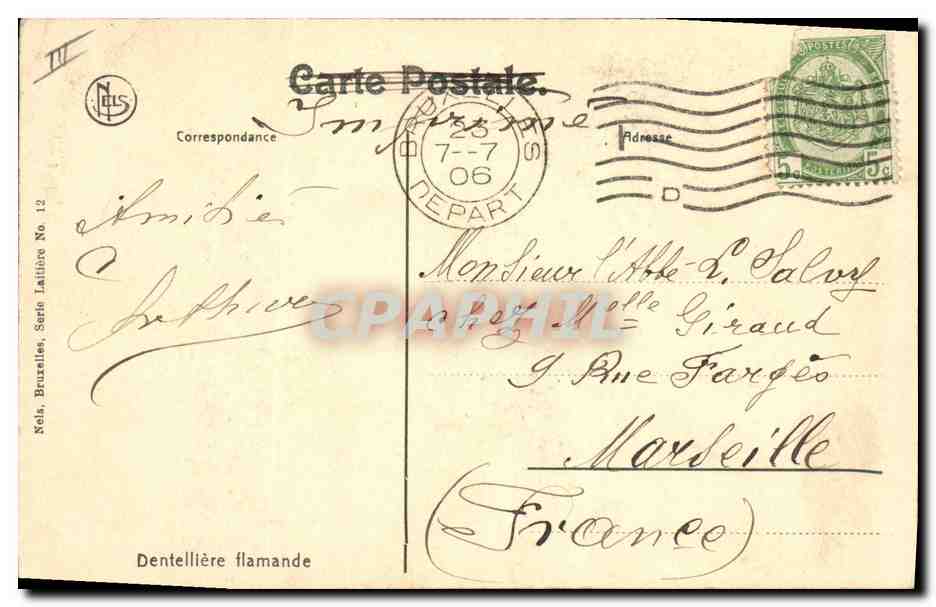 III
NELS
Carte Postale.
Imprimé
Correspondance
Adresse
BRUXELLES
23
7--7
06
DEPART
D
POSTES
5c
5c
POSTERIJEN
Amitié
Arthur
Monsieur l'Abbé L. Salvy
chez Melle Giraud
9 Rue Fargès
Marseille
(France)
CPAPHIL
Nels, Bruxelles, Serie Laitière No. 12
Dentellière flamande